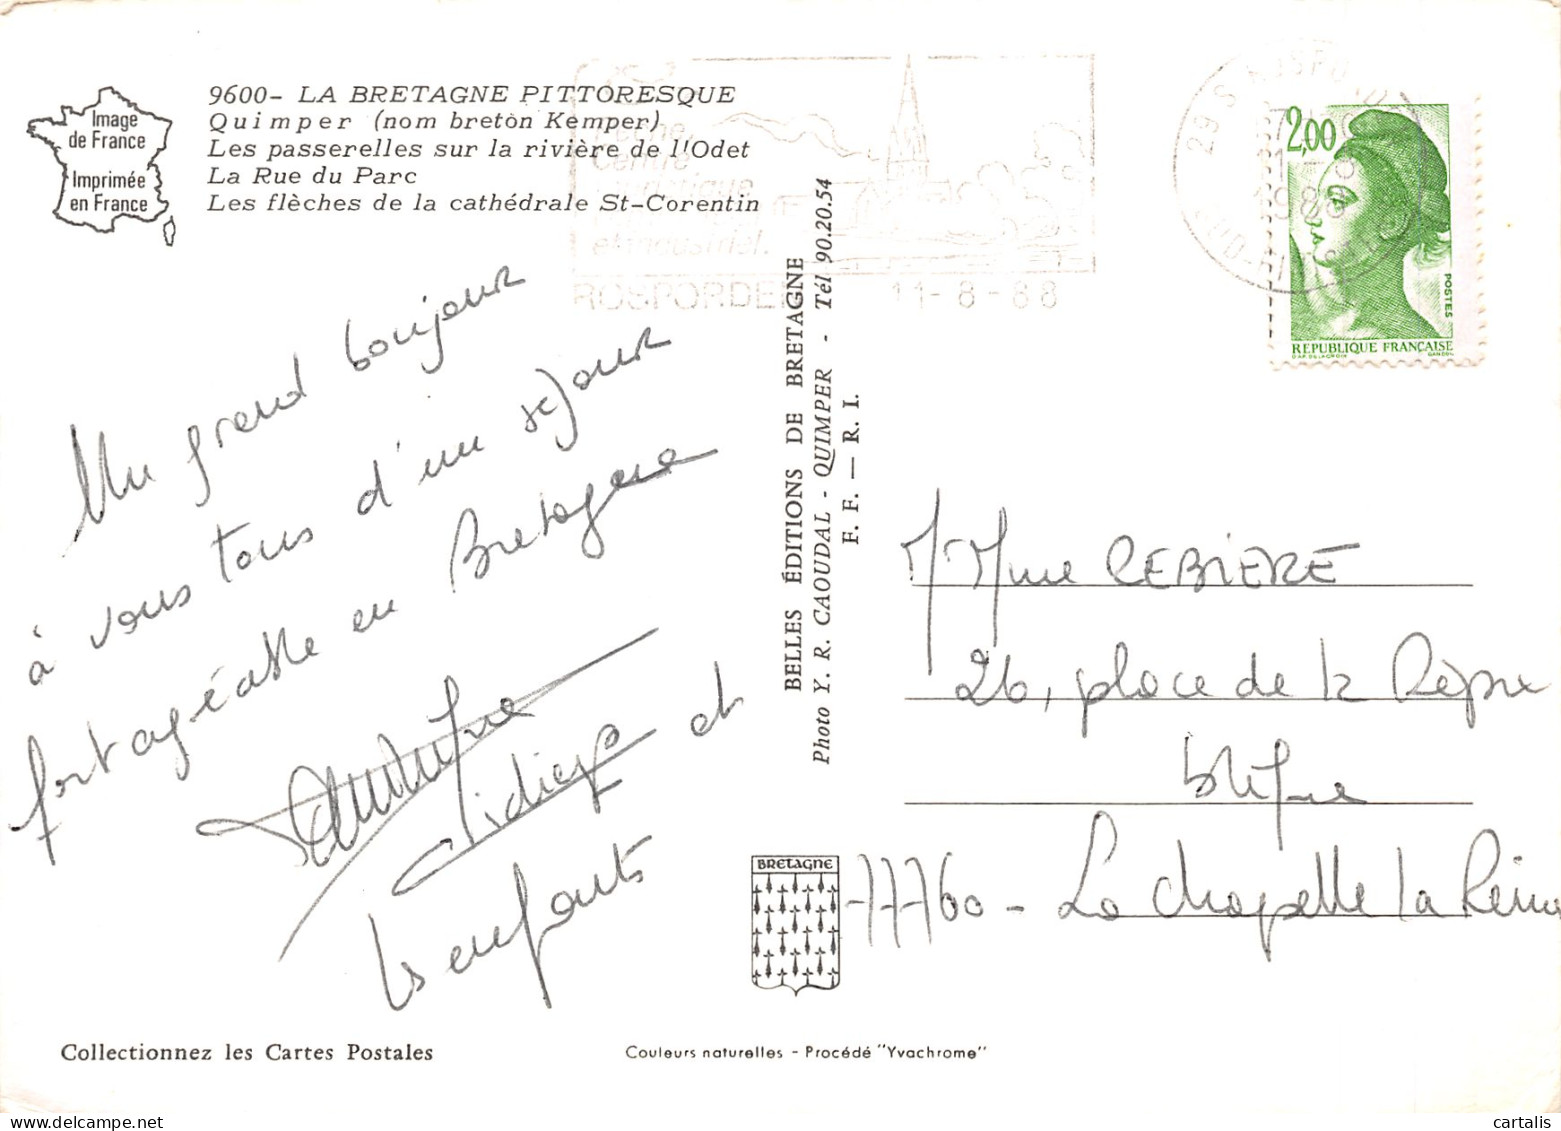 Image
de France
Imprimée
en France
9600- LA BRETAGNE PITTORESQUE
Quimper (nom breton Kemper)
Les passerelles sur la rivière de l'Odet
La Rue du Parc
Les flèches de la cathédrale St-Corentin
Pêche,
Centre
et industriel.
ROSPORDEN 11-8-88
2,00
POSTES
REPUBLIQUE FRANÇAISE
Un grand bonjour
à vous tous d'un séjour
fort agréable en Bretagne
et
les enfants
BELLES ÉDITIONS DE BRETAGNE
Photo Y. R. CAOUDAL - QUIMPER - Tél 90.20.54
F. F. — R. I.
M Mme REBIERE
26, place de la
77760 - La Chapelle la Reine
BRETAGNE
Collectionnez les Cartes Postales
Couleurs naturelles - Procédé "Yvachrome"
cartalis